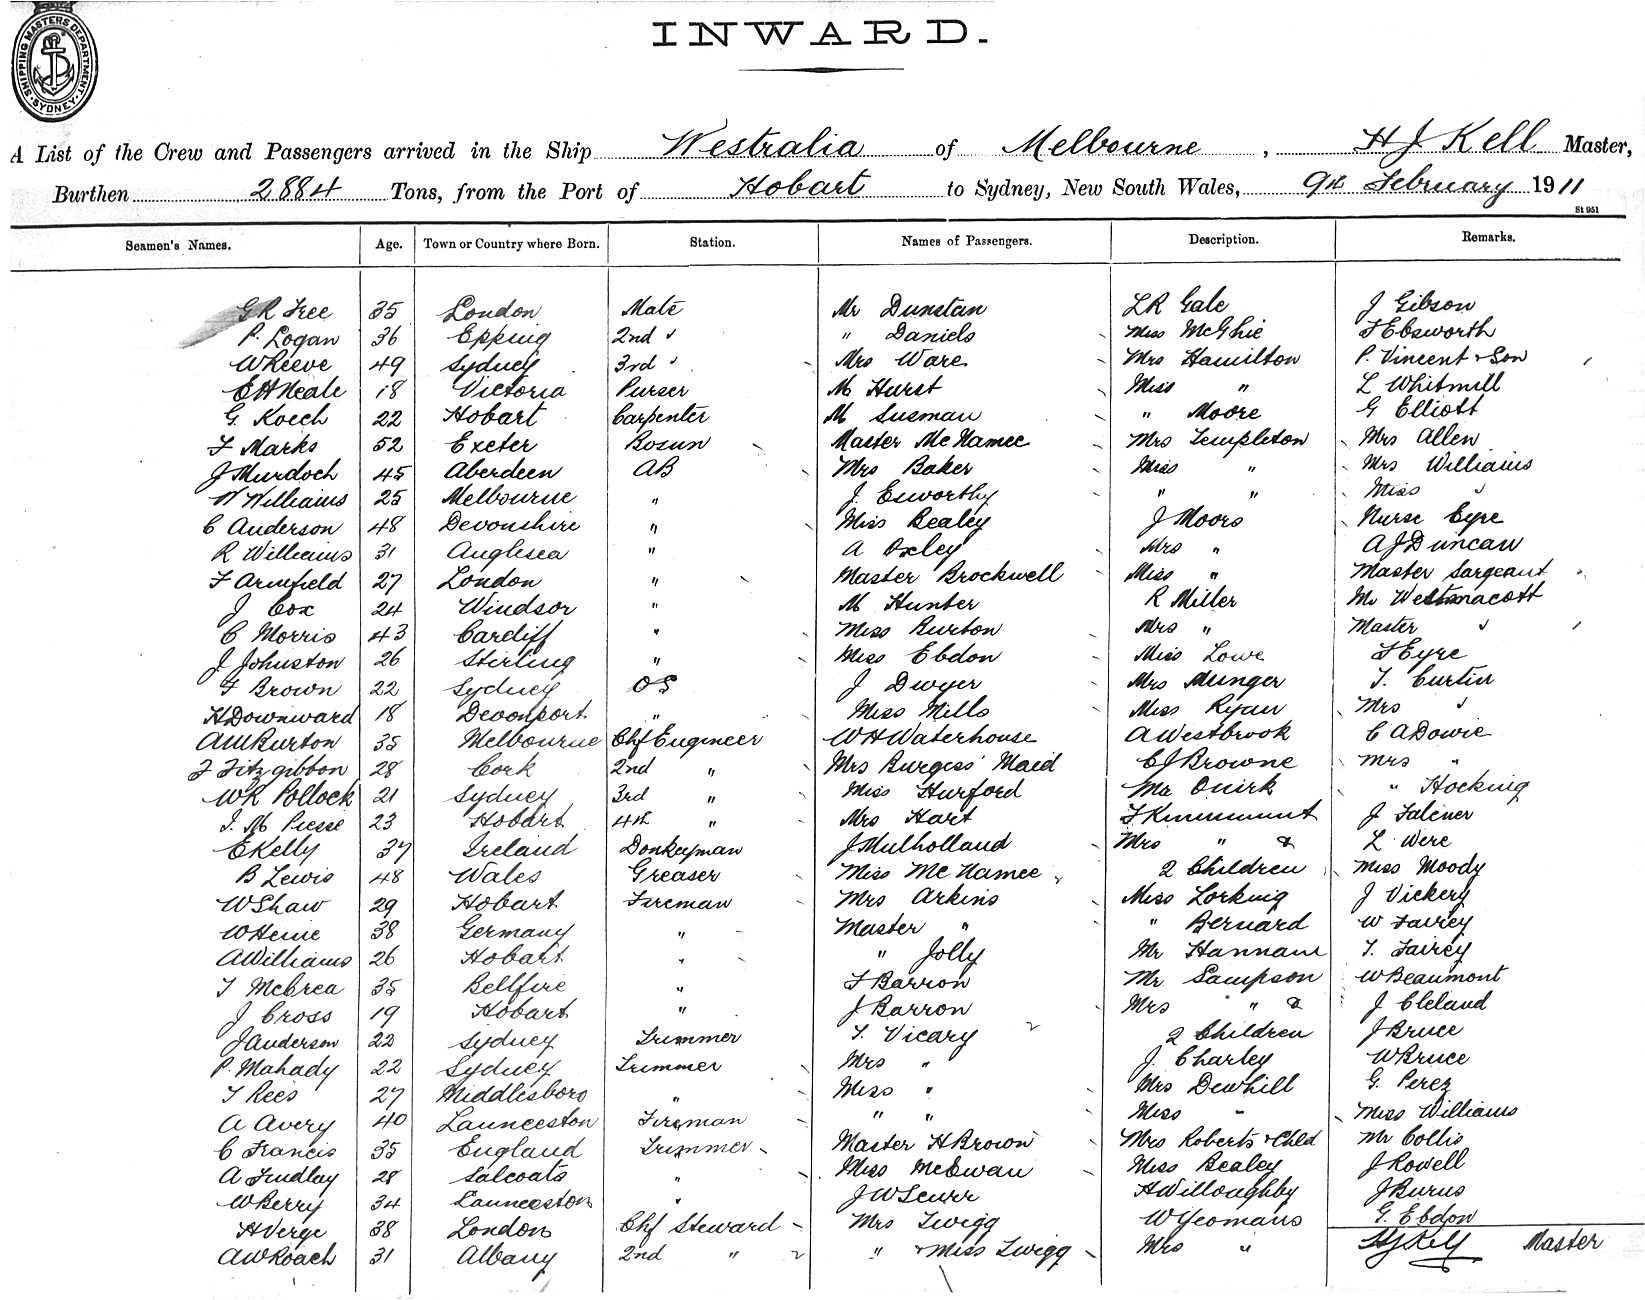 SHIPPING MASTERS DEPARTMENT. SYDNEY.
INWARD.
A List of the Crew and Passengers arrived in the Ship Westralia of Melbourne, H J Kell Master,
Burthen 2884 Tons, from the Port of Hobart to Sydney, New South Wales, 9th February 1911
St 951
Seamen's Names. Age. Town or Country where Born. Station. Names of Passengers. Description. Remarks.
G R Tree 35 London Mate Mr Dunstan L R Gale J Gibson
P. Logan 36 Epping 2nd " " Daniels Miss McGhie F Ebsworth
W Reeve 49 Sydney 3rd " Mrs Ware Mrs Hamilton P. Vincent & Son
E H Neale 18 Victoria Purser M Hurst Miss " L Whitmill
G. Koech 22 Hobart Carpenter M Susman " Moore G Elliott
F Marks 52 Exeter Bosun Master McNamee Mrs Templeton Mrs Allen
J Murdoch 45 Aberdeen AB Mrs Baker Miss " Mrs Williams
W Williams 25 Melbourne " J. Esworthy " " Miss "
C Anderson 48 Devonshire " Miss Bealey J Moors Nurse Eyre
R Williams 31 Anglesea " A Oxley Mrs " A J Duncan
F Armfield 27 London " Master Brockwell Miss " Master Sargeant
J Cox 24 Windsor " M Hunter R Miller Mr Westmacott
C Morris 43 Cardiff " Miss Burton Mrs " Master "
J Johnston 26 Stirling " Miss Ebdon Miss Lowe F Eyre
F Brown 22 Sydney OS J Dwyer Mrs Munger T. Curtin
H Downward 18 Devonport " Miss Mills Miss Ryan Mrs "
A W Burton 35 Melbourne Chf Engineer W H Waterhouse A Westbrook C A Dowie
J Fitzgibbon 28 Cork 2nd " Mrs Burgess' Maid C J Browne Mrs "
W R Pollock 21 Sydney 3rd " Miss Hurford Mr Quirk " Hocking
J. M Piesse 23 Hobart 4th " Mrs Hart F J Falener
E Kelly 37 Ireland Donkeyman J Mulholland Mrs " & L Were
B Lewis 48 Wales Greaser Miss McNamee 2 Children Miss Moody
W Shaw 29 Hobart Fireman Mrs Arkins Miss Lorking J Vickery
W Heine 38 Germany " Master " " Bernard W Fairey
A Williams 26 Hobart " " Jolly Mr Hannam T. Fairey
T McCrea 35 Bellfire " F Barron Mr Sampson W Beaumont
J Cross 19 Hobart " J Barron Mrs " & J Cleland
J Anderson 22 Sydney Trimmer T. Vicary 2 Children J Bruce
P. Mahady 22 Sydney Trimmer Mrs " J. Charley W Bruce
T Rees 27 Middlesboro " Miss " Mrs Dewhill G. Perez
A Avery 40 Launceston Fireman " " Miss " Miss Williams
C Francis 35 England Trimmer Master H Brown Mrs Roberts & Chld Mr Collis
A Findlay 28 Salcoats " Miss McEwan Miss Bealey J Rowell
W Berry 34 Launceston " J W Scurr H Willoughby J Burns
H Verge 38 London Chf Steward Mrs Twigg W Yeomans G. Ebdon
A W Roach 31 Albany 2nd " " & Miss Twigg Mrs " H J Kell Master